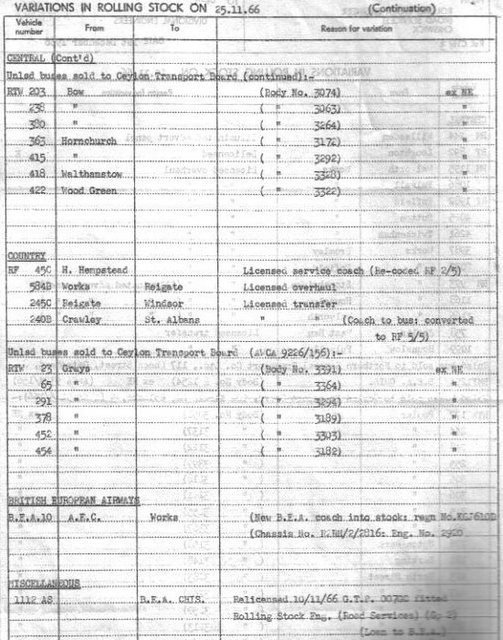 VARIATIONS IN ROLLING STOCK ON 25.11.66 (Continuation)
Vehicle number From To Reason for variation
CENTRAL (Cont'd)
Unlsd buses sold to Ceylon Transport Board (continued):-
RTW 203 Bow (Body No. 3074) ex NE
238 " ( " 3063) "
380 " ( " 3264) "
363 Hornchurch ( " 3172) "
415 " ( " 3292) "
418 Walthamstow ( " 3328) "
422 Wood Green ( " 3322) "
COUNTRY
RF 45C H. Hempstead Licensed service coach (Re-coded RF 2/5)
584B Works Reigate Licensed overhaul
245C Reigate Windsor Licensed transfer
240B Crawley St. Albans " " (Coach to bus: converted
to RF 5/5)
Unlsd buses sold to Ceylon Transport Board (AVCA 9226/156):-
RTW 23 Grays (Body No. 3391) ex NE
65 " ( " 3364) "
291 " ( " 3294) "
378 " ( " 3189) "
452 " ( " 3303) "
454 " ( " 3182) "
BRITISH EUROPEAN AIRWAYS
B.E.A.10 A.E.C. Works (New B.E.A. coach into stock: regn No.
(Chassis No. Eng. No.
MISCELLANEOUS
1112 AS B.E.A. CHIS. Relicensed 10/11/66 G.T.P. 0070C fitted
Rolling Stock Eng. (Road Services)
(Loan to B.E.A.)